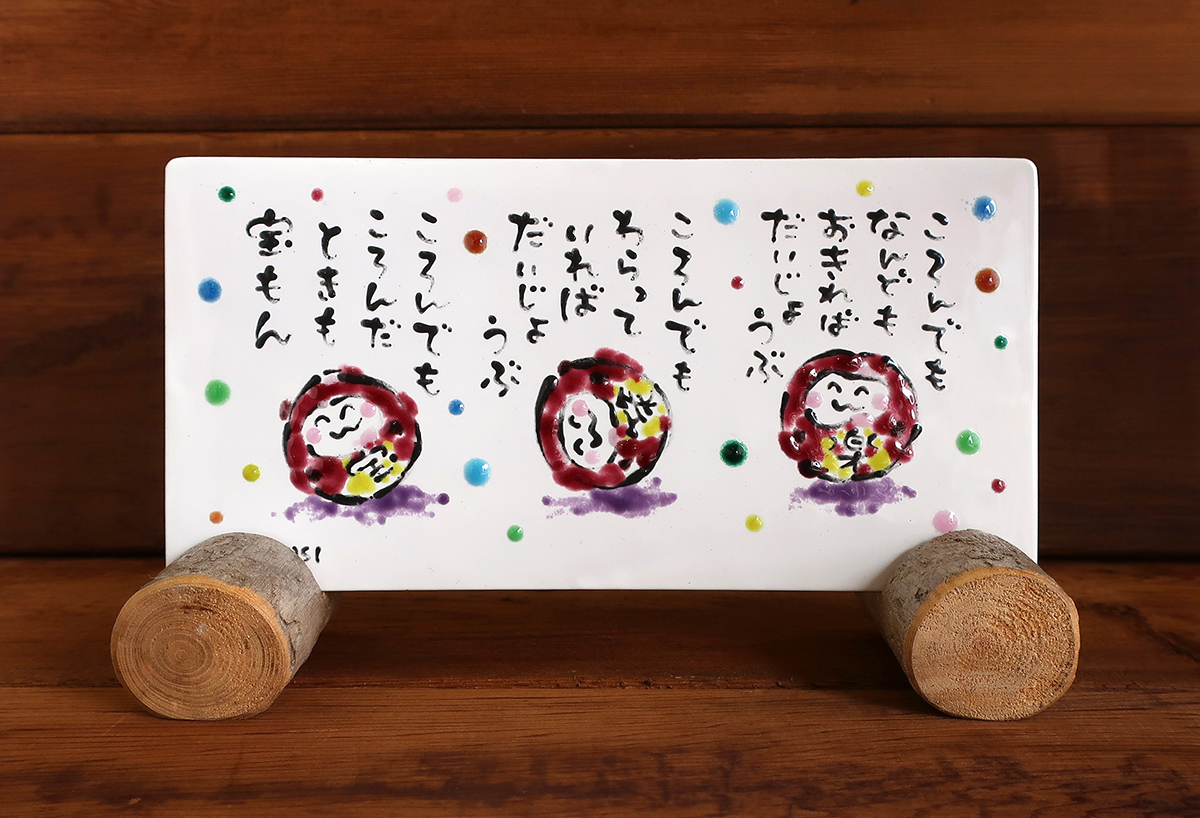 ころんでも
なんども
おきれば
だいじょうぶ
ころんでも
わらって
いれば
だいじょうぶ
ころんでも
ころんだ
ときも
宝もん